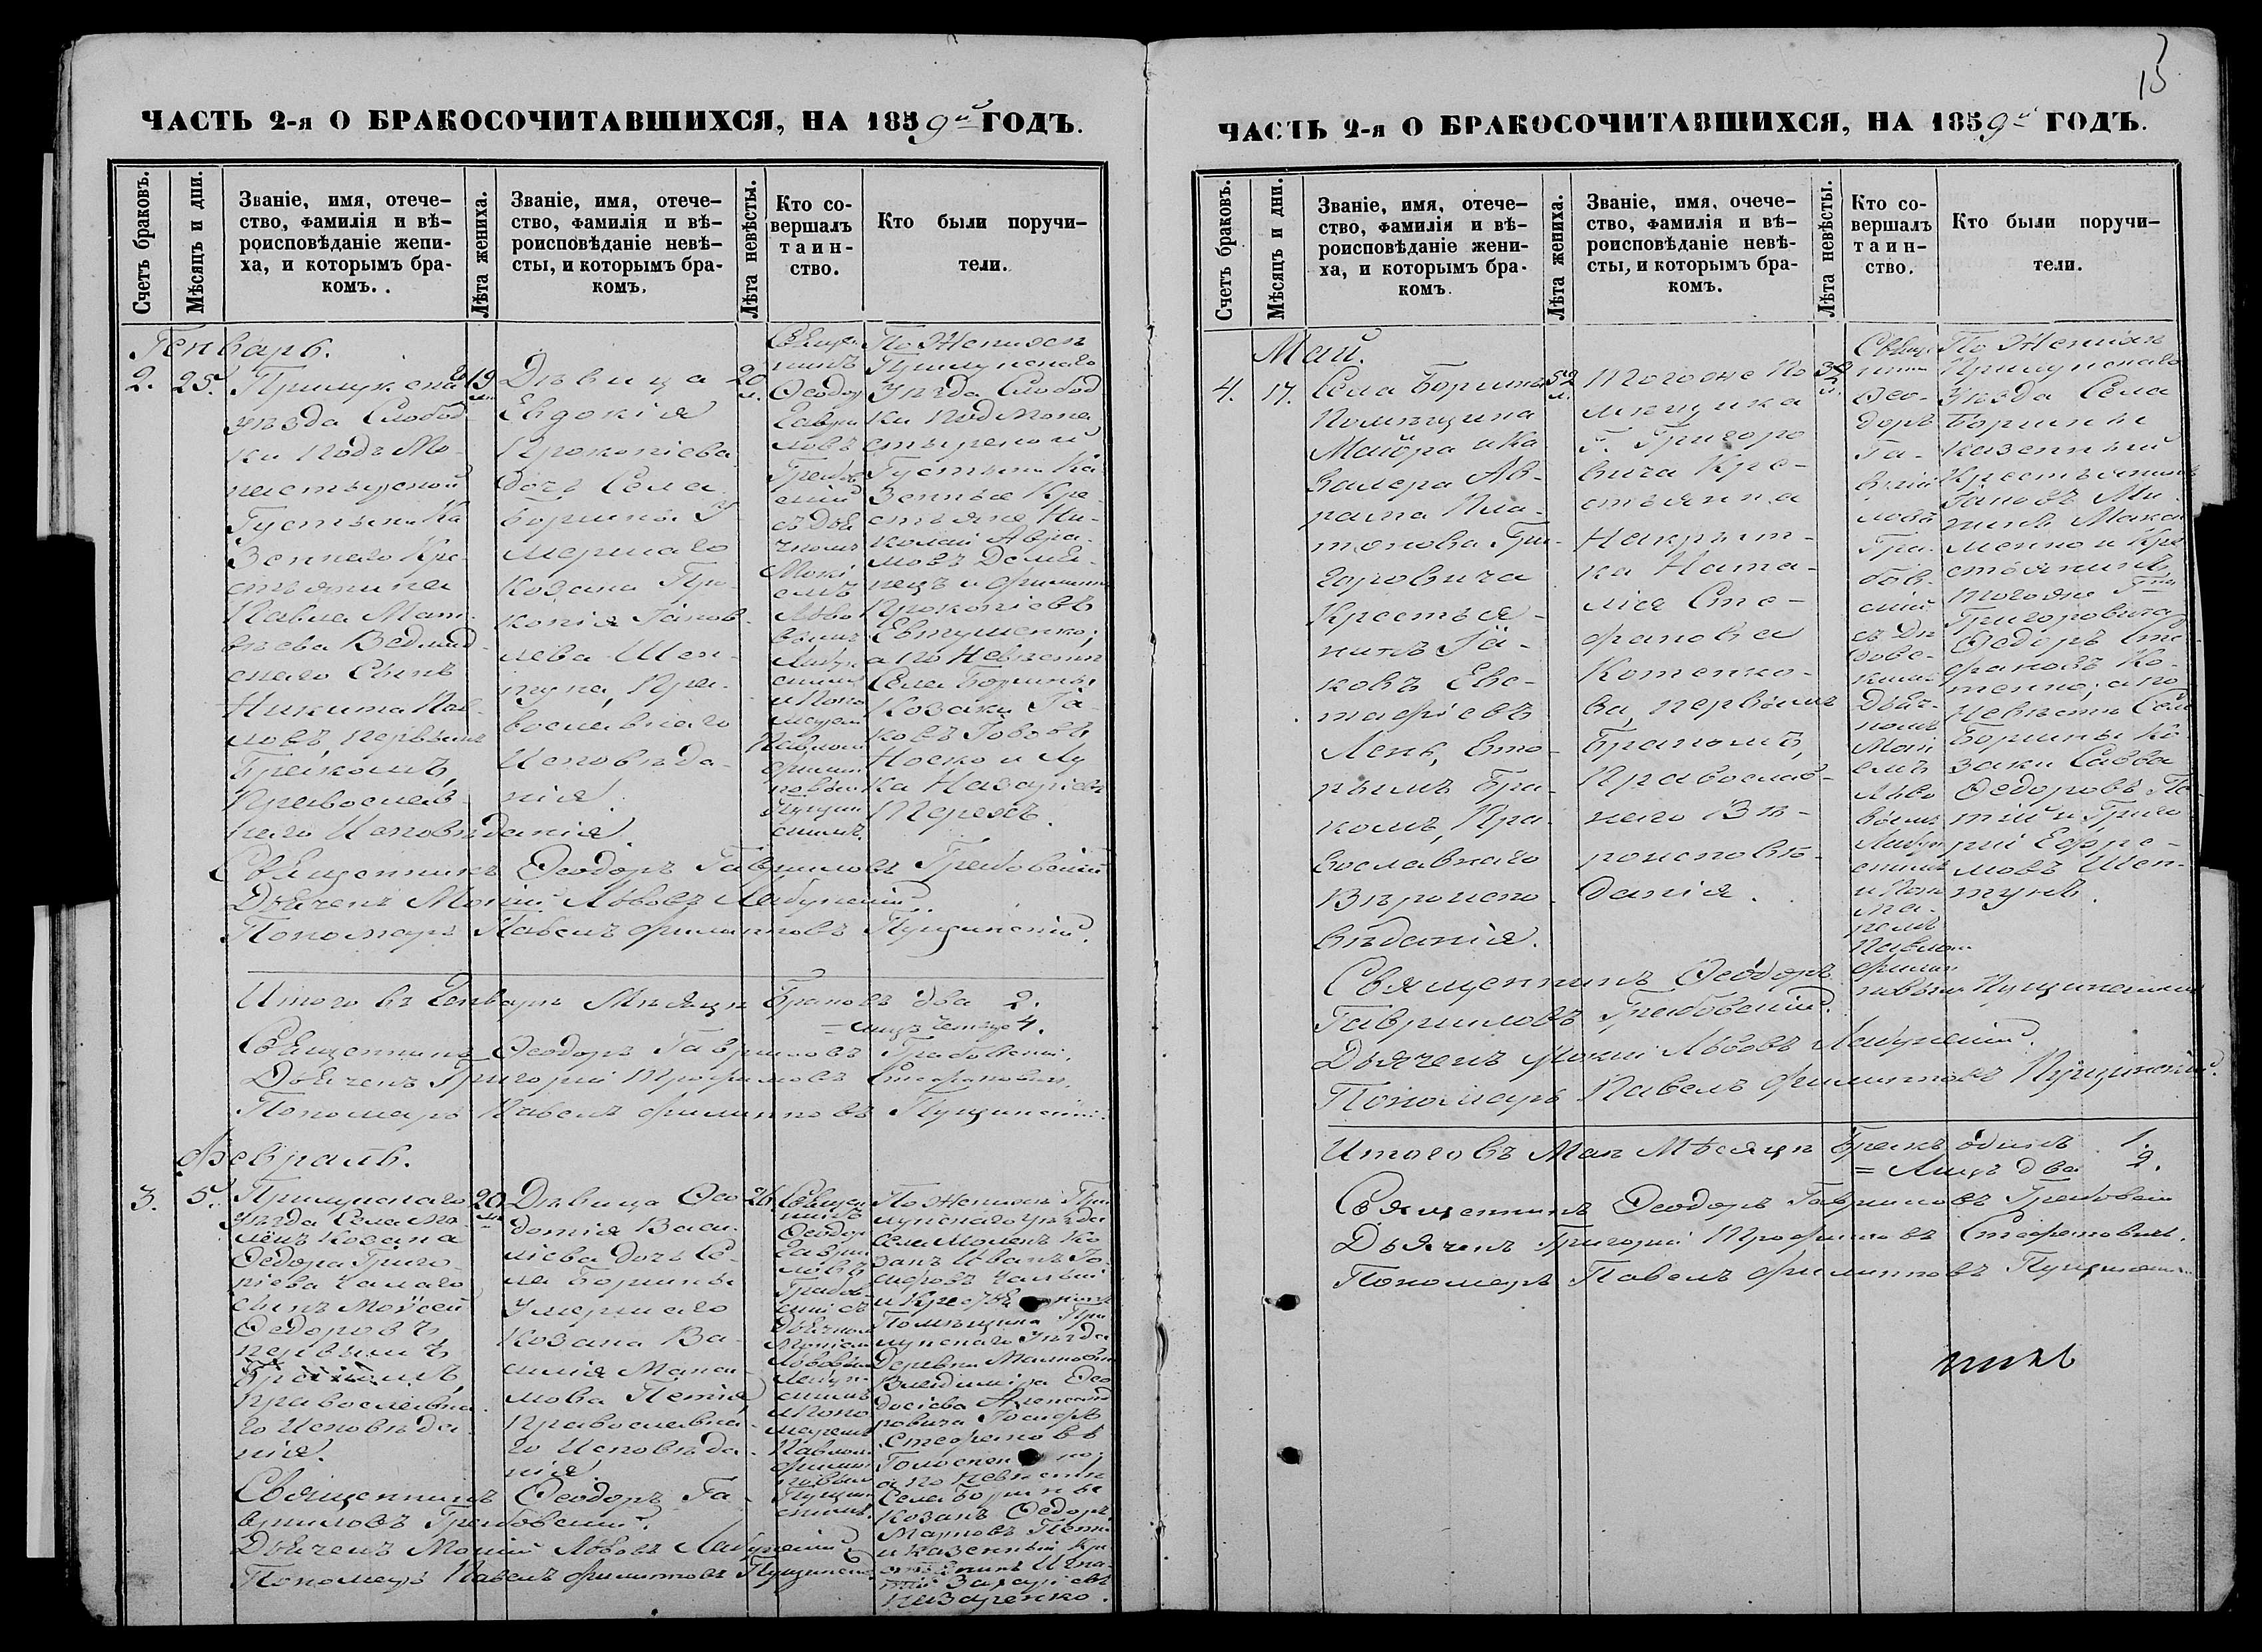 15
ЧАСТЬ 2-я О БРАКОСОЧИТАВШИХСЯ, НА 1859й ГОДЪ.
Счетъ браковъ.
Мѣсяцъ и дни.
Званіе, имя, отече-
ство, фамилія и вѣ-
роисповѣданіе жени-
ха, и которымъ бра-
комъ.
Лѣта жениха.
Званіе, имя, отече-
ство, фамилія и вѣ-
роисповѣданіе невѣ-
сты, и которымъ бра-
комъ.
Лѣта невѣсты.
Кто со-
вершалъ
таин-
ство.
Кто были поручи-
тели.
Генварь.
2.
25.
Прилукскаго
уѣзда Слобод
ки Подъ Мо-
настырской
Густыни Ка
зеннаго Кре-
стьянина
Павла Мат-
вѣева
скаго Сынъ
Никита Пав-
ловъ, первымъ
бракомъ,
Православ-
наго Исповѣданія.
19
Дѣвица
Евдокія
Прокопіева
дочь Села
Боршны У-
мершаго
Козака Про-
копія Іаков-
лева Шеп-
туна, Пра-
вославнаго
Исповѣда-
нія.
20
л.
Священ
никъ
Ѳеодоръ
Гаври
ловъ
Гребов
скій
съ Дья
чкомъ
Мокі
емъ
Льво
вымъ
Лябун
скимъ
и Поно
маремъ
Павломъ
Филип
повым
Пущин
скимъ.
По Женихѣ
Прилукскаго
Уѣзда Слобод
ки Подмона
стырской
Густыни Ка
зенные Кре-
стьяне Ни-
колай Авра-
мовъ
нецъ и Филиппъ
Прокопіевъ
Евтушенко;
а по Невѣстѣ
Села Боршны
Козаки Іа-
ковъ Іововъ
Носко и Лу
ка Назаріевъ
Перехъ.
Священникъ Ѳеодоръ Гавриловъ Гребовскій
Дьячекъ Мокій Львовъ Лябунскій.
Пономарь Павелъ Филипповъ Пущинскій.
Итого въ Генварѣ Мѣсяцѣ Браковъ два 2.
= лицъ четыре 4.
Священникъ Ѳеодоръ Гавриловъ Гребовскій.
Дьячекъ Григорій Трофимовъ Стефановичъ.
Пономарь Павелъ Филипповъ Пущинскій.
Февраль.
3.
5.
Прилукскаго
Уѣзда Села Мо-
ленъ Козака
Ѳедора Григо-
ріева Чалаго
сынъ Моѵсей
Ѳедоровъ
первымъ
Бракомъ,
православна
го Исповѣда
нія.
20
Дѣвица Ѳео
досія Васи-
ліева дочь Се-
ла Боршны
Умершаго
Козака Ва-
силія Марка
лова Петія
православна-
го Исповѣда-
нія.
26.
Священ
никъ
Ѳеодор
Гаври
ловъ
Гребов-
скій съ
Дьячком
Мокіем
Львовым
Лябун
скимъ
и Поно
маремъ
Павломъ
Филип
повым
Пущин
скимъ.
По Женихѣ При
лукскаго уѣзда
Села Моленъ Ко
закъ Иванъ
Чалый
и Крестьянинъ
Помѣщика При
лукскаго Уѣзда
Деревни
Владиміра Ѳео
досіева Александ
ровича Іосифъ
Стефановъ
а по Невѣстѣ
Села Боршны
Козакъ Ѳедоръ
Марковъ Петій
и казенный Кре
стьянинъ Игна-
тій Захаріевъ
Назаренко.
Священникъ Ѳеодоръ Га-
вриловъ Гребовскій.
Дьячекъ Мокій Львовъ Лябунскій
Пономарь Павелъ Филипповъ Пущинскій
ЧАСТЬ 2-я О БРАКОСОЧИТАВШИХСЯ, НА 1859й ГОДЪ.
Счетъ браковъ.
Мѣсяцъ и дни.
Званіе, имя, отече-
ство, фамилія и вѣ-
роисповѣданіе жени-
ха, и которымъ бра-
комъ.
Лѣта жениха.
Званіе, имя, очече-
ство, фамилія и вѣ-
роисповѣданіе невѣ-
сты, и которымъ бра-
комъ.
Лѣта невѣсты.
Кто со-
вершалъ
таин-
ство.
Кто были поручи-
тели.
Май.
4.
17.
Села Боршны
Помѣщика
Майора и Ка
валера Ав-
рама Пла-
тонова Гри-
горовича
Крестья-
нинъ Іа-
ковъ Евс-
тафіевъ
Лень, вто-
рымъ Бра-
комъ, Пра-
вославнаго
Вѣроиспо-
вѣданія.
52
л.
Того же По
мѣщика
Г. Григоро
вича Кре-
стьянка
ка Ната-
лія Сте-
фанова
Котенко-
ва, первымъ
Бракомъ,
Православ-
наго Вѣ-
роисповѣ-
данія.
Священ
никъ
Ѳео-
доръ
Га-
врiи
ловъ
Гре-
бов-
скій
Дьяч-
комъ
Мокі
емъ
Льво
вымъ
Лябун
скимъ
и Поно
ма-
ремъ
Павлом
Филип
повымъ Пущинскимъ
По Женихѣ
Прилукскаго
Уѣзда Села
Боршны
казенный
Крестьянинъ
Іаковъ
Мака
менко и Кре
стьянинъ
того же Гна
Григоровича
Ѳедоръ Сте
фановъ Ко-
тенко; а по
Невѣстѣ Села
Боршны Ко
заки Савва
Ѳедоровъ Пе-
тій и Григо
рій Ефре-
мовъ Шеп-
тунъ.
Священникъ Ѳеодоръ
Гавриловъ Гребовскій.
Дьячекъ Мокій Львовъ Лябунскій.
Пономарь Павелъ Филипповъ Пущинскій.
Итого въ Маѣ Мѣсяцѣ Бракъ одинъ 1.
= Лицъ два 2.
Священникъ Ѳеодоръ Гавриловъ Гребовскій
Дьячекъ Григорій Трофимовъ Стефановичъ.
Пономарь Павелъ Филипповъ Пущинскій